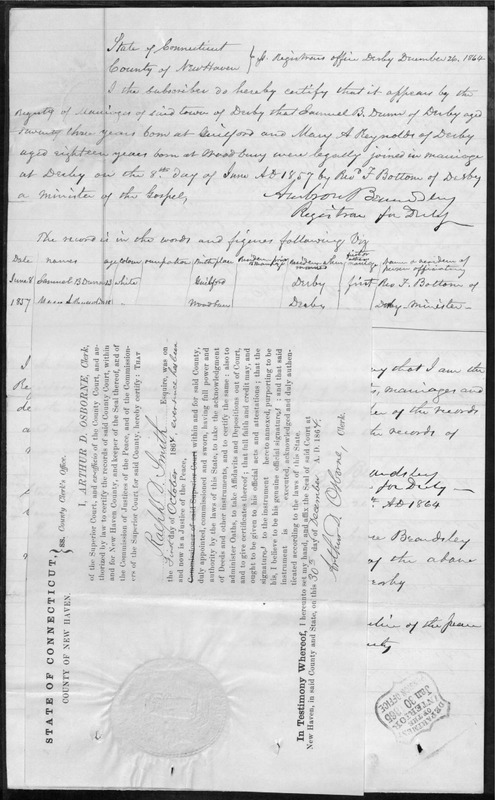 State of Connecticut
County of New Haven } ss. Registrars office Derby December 26, 1864
I the subscriber do hereby certify that it appears by the
Registry of Marriages of said town of Derby that Samuel B. Dunn of Derby aged
twenty three years born at Guilford and Mary A Reynolds of Derby
aged eighteen years born at Woodbury were legally joined in marriage
at Derby on the 8th day of June AD 1857 by Rev. F. Bottom of Derby
a minister of the Gospel,
Beardsley
Registrar for Derby
The record is in the words and figures following Viz
Date names age colour occupation birthplace residence when married first or other marriage name & residence of person officiating
June 8 Samuel B Dunn 23 white Guilford Derby first Rev F. Bottom of
1857 18 Woodbury Derby Derby minister
STATE OF CONNECTICUT,
COUNTY OF NEW HAVEN.
} ss. County Clerk's Office.
I, ARTHUR D. OSBORNE, Clerk
of the Superior Court, and ex-officio of the County Court, and au-
thorized by law to certify the records of said County Court, within
and for New Haven County, and keeper of the Seal thereof, and of
the Commission of Justices of the Peace, and of the Commission-
ers of the Superior Court for said County, hereby certify: THAT
Ralph A. Smith Esquire, was on
the day of October 1864, ever since has been
and now is a Justice of the Peace,
Commissioner of said Superior Court within and for said County,
duly appointed, commissioned and sworn, having full power and
authority by the laws of this State, to take the acknowledgment
of Deeds and other instruments, and to certify the same: also to
administer Oaths, to take Affidavits and Depositions out of Court,
and to give certificates thereof; that full faith and credit may, and
ought to be given to his official acts and attestations; that the
signature to the instrument hereto annexed, purporting to be
his, I believe to be his genuine official signature, and that said
instrument is executed, acknowledged and duly authen-
ticated according to the laws of this State.
In Testimony Whereof, I hereunto set my hand, and affix the Seal of said Court at
New Haven, in said County and State, on this 30th day of December A. D. 1864.
Arthur D. Osborne, Clerk.
that I am the
marriages and
of the records
records of
for Derby
AD 1864
Beardsley
of the above
Derby
of the peace
DEPARTMENT
OF THE
INTERIOR
JAN 30
1865
OFFICE